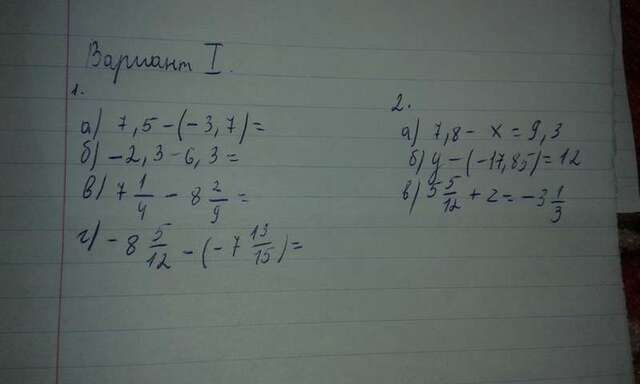 Вариант I.
1.
а) 7,5 - (-3,7) =
б) -2,3 - 6,3 =
в) 7 1/4 - 8 2/9 =
г) -8 5/12 - (-7 13/15) =
2.
а) 7,8 - x = 9,3
б) y - (-17,85) = 12
в) 5 5/12 + z = -3 1/3